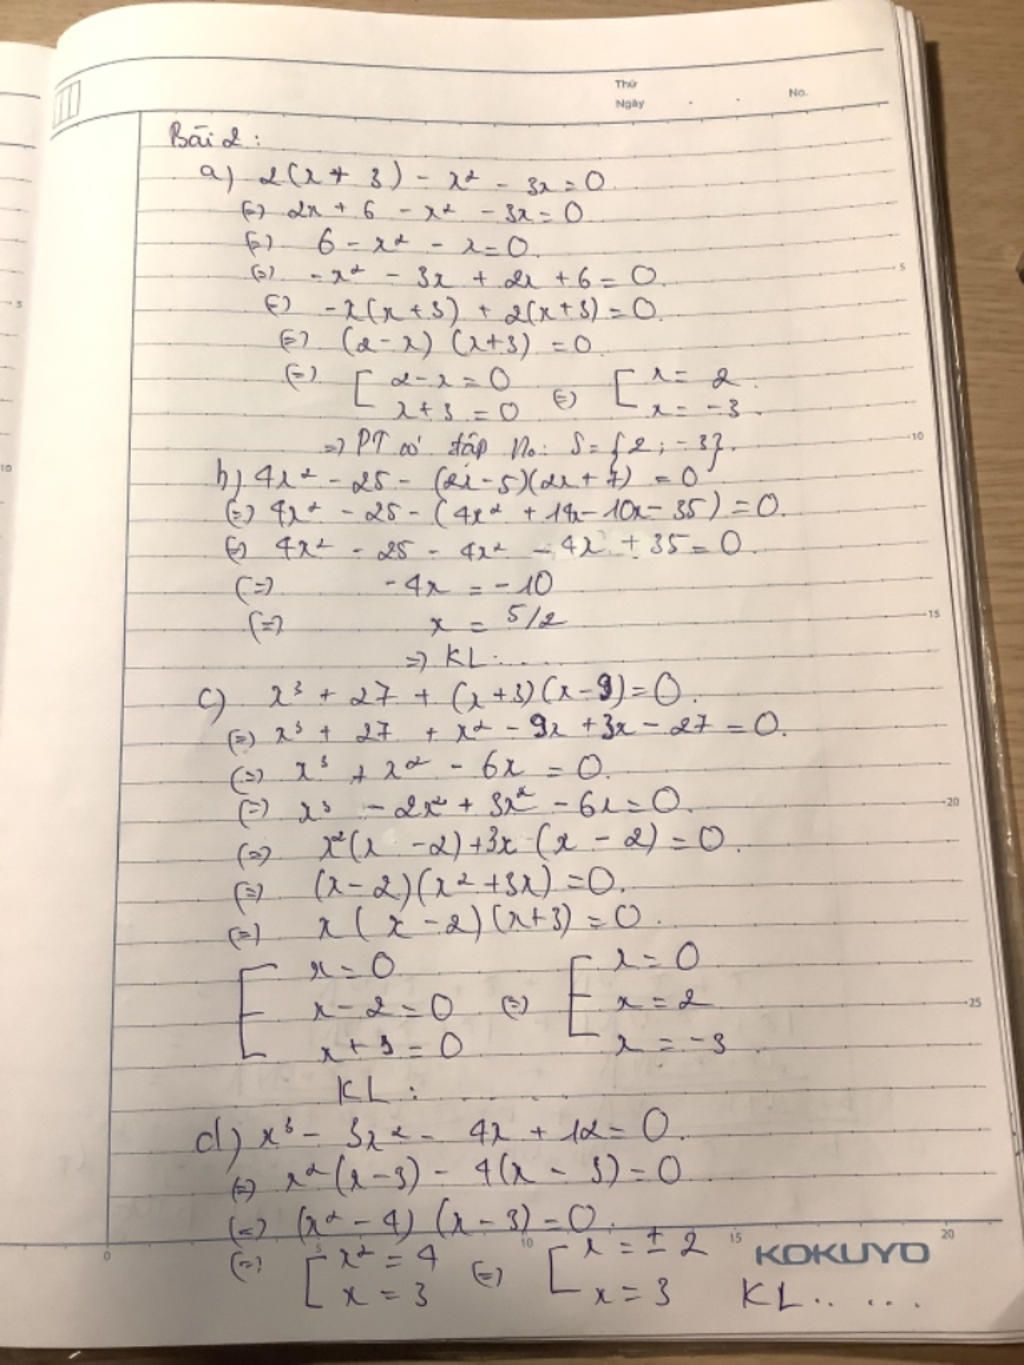 Thứ
Ngày
No.
Bài 2:
a) 2(x + 3) - x² - 3x = 0
(=) 2x + 6 - x² - 3x = 0
(=) 6 - x² - x = 0.
(=) -x² - 3x + 2x + 6 = 0.
(=) -x(x+3) + 2(x+3) = 0.
(=) (2-x) (x+3) = 0.
(=) [ 2-x = 0 (=) [ x = 2.
x+3 = 0 x = -3.
=) PT có tập no: S = {2; -3}.
b) 4x² - 25 - (2x-5)(2x+7) = 0
(=) 4x² - 25 - (4x² + 14x - 10x - 35) = 0.
(=) 4x² - 25 - 4x² - 4x + 35 = 0.
(=) -4x = -10
(=) x = 5/2
=) KL:....
c) x³ + 27 + (x+3)(x-9) = 0.
(=) x³ + 27 + x² - 9x + 3x - 27 = 0.
(=) x³ + x² - 6x = 0.
(=) x³ - 2x² + 3x² - 6x = 0.
(=) x²(x - 2) + 3x (x - 2) = 0.
(=) (x-2)(x² + 3x) = 0.
(=) x (x-2)(x+3) = 0.
[ x = 0 [ x = 0
x - 2 = 0 (=) x = 2
x + 3 = 0 x = -3.
KL:......
d) x³ - 3x² - 4x + 12 = 0.
(=) x²(x-3) - 4(x - 3) = 0
(=) (x² - 4) (x - 3) = 0.
(=) [ x² = 4 (=) [ x = ± 2
x = 3 x = 3 KL.....
KOKUYO
5
10
15
20
25
0
5
10
15
20
5
10